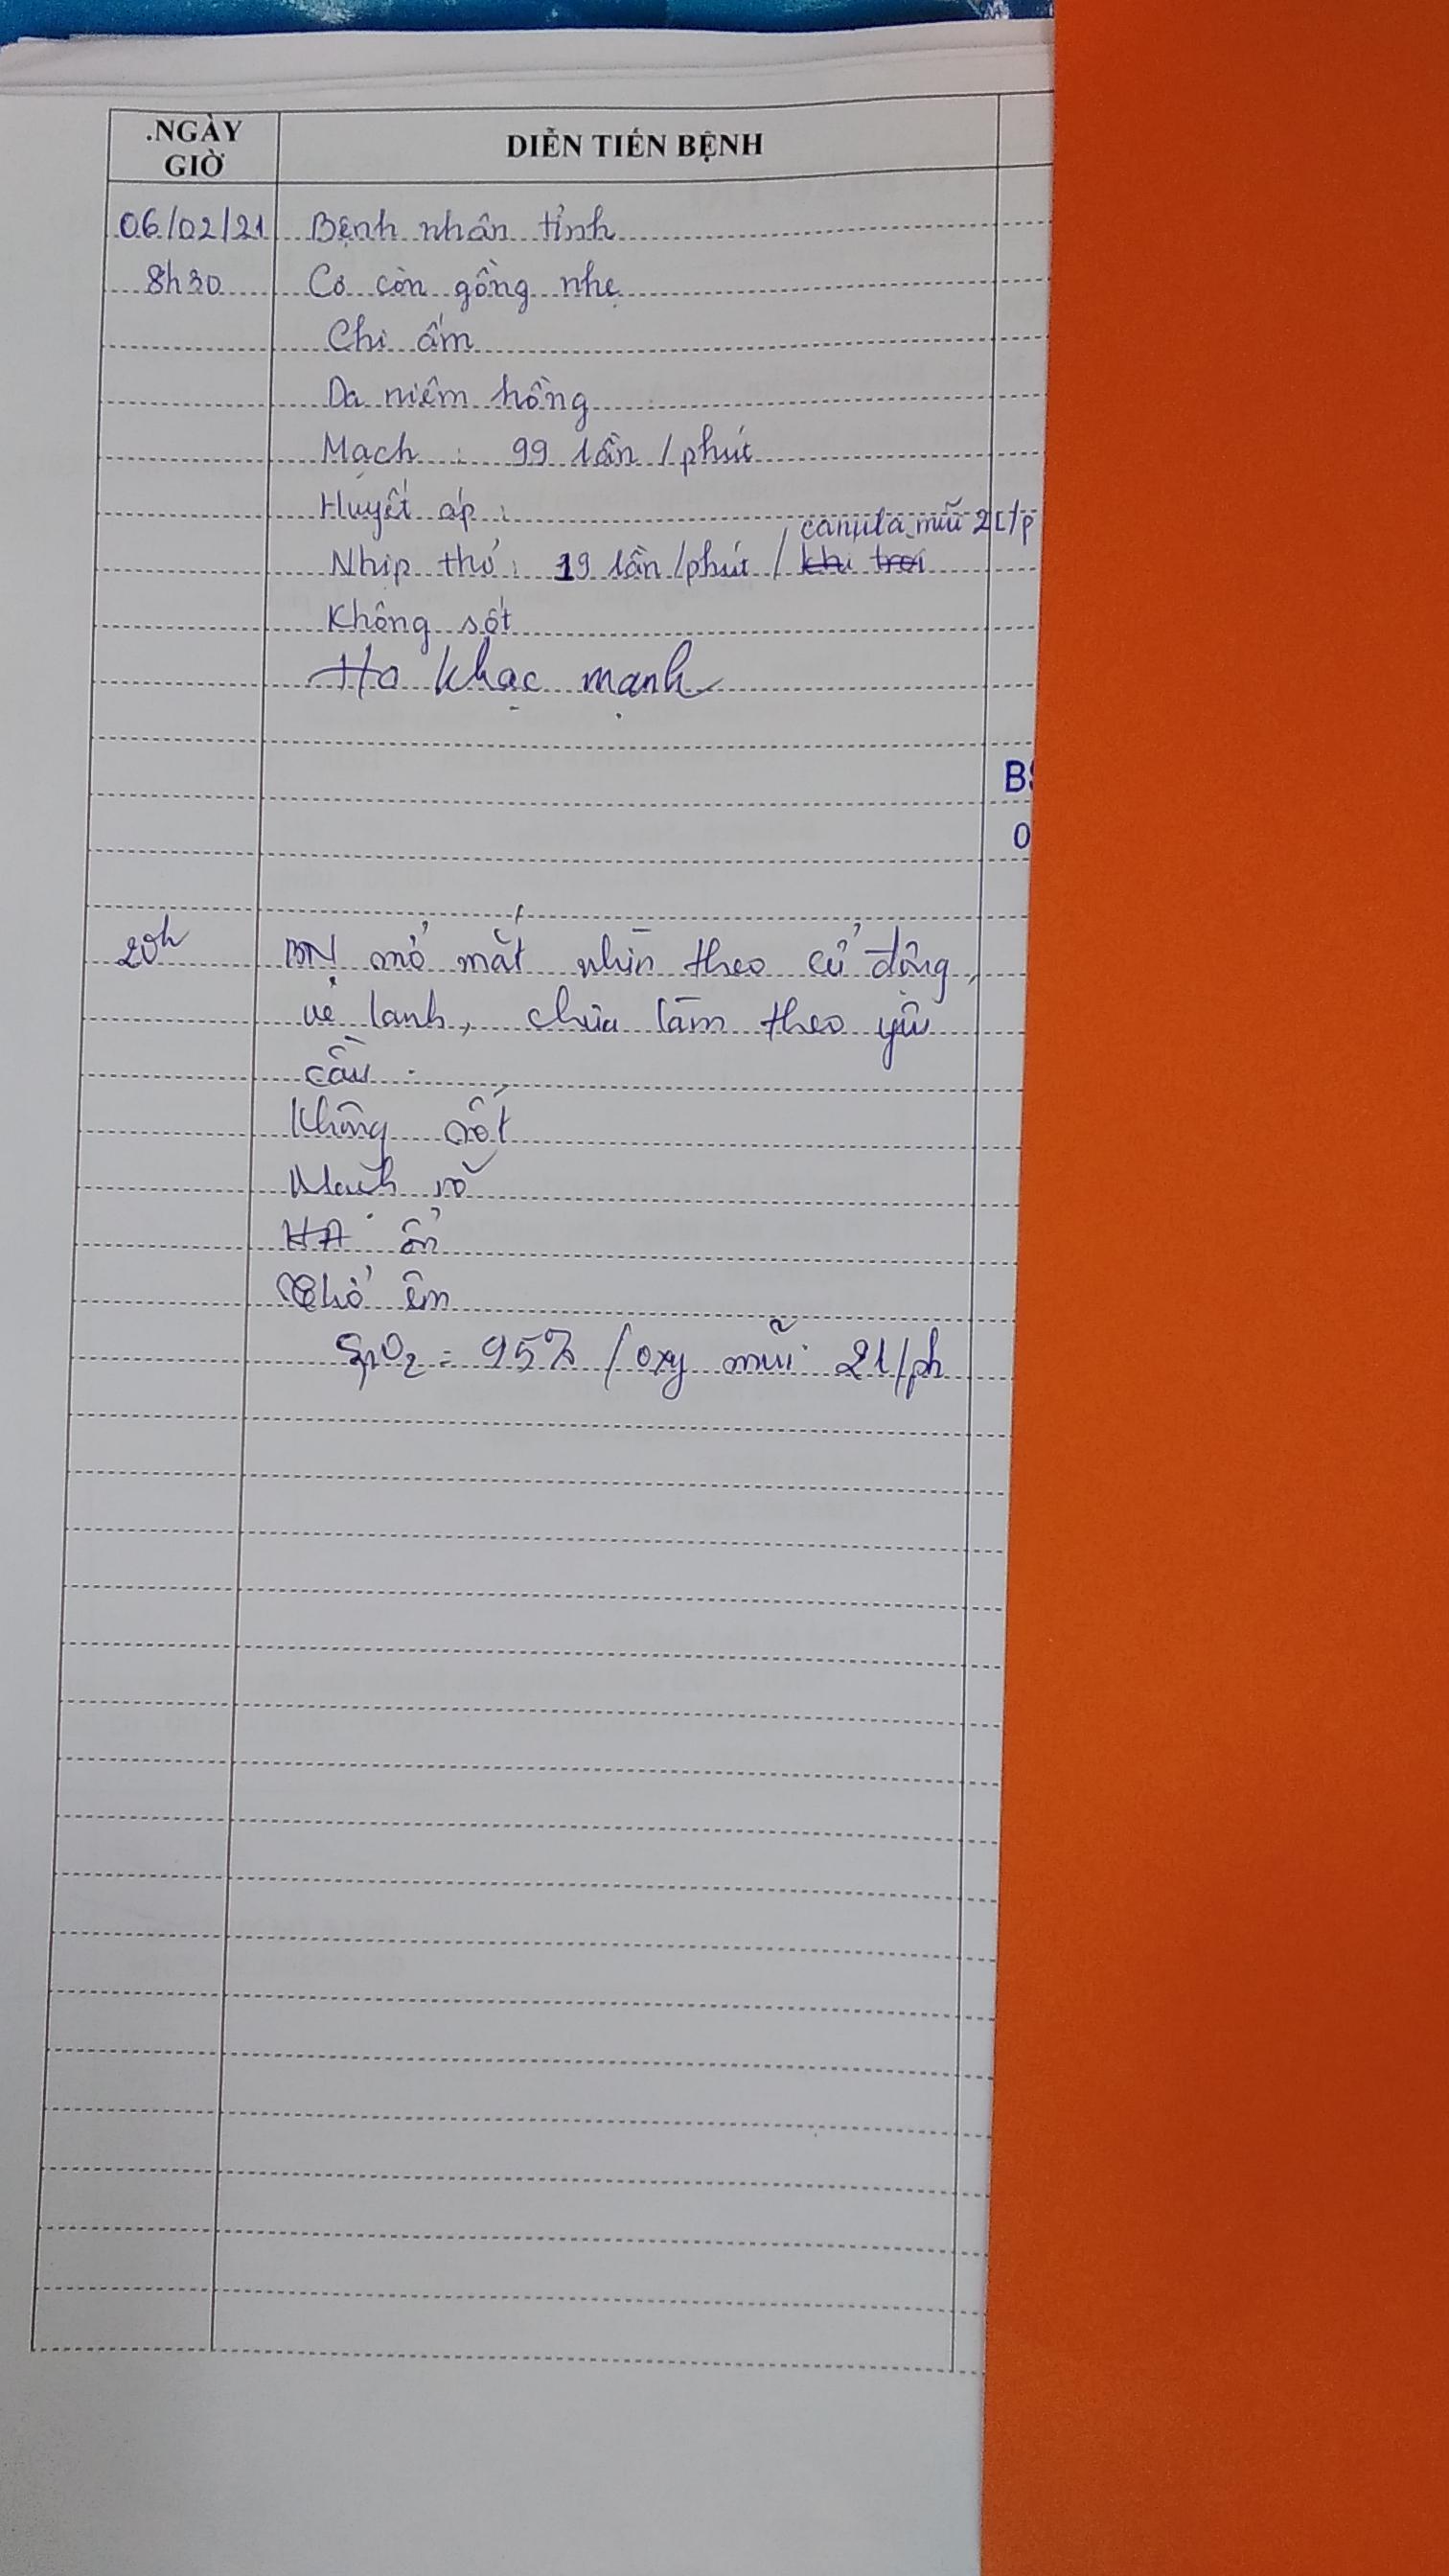 .NGÀY
GIỜ
DIỄN TIẾN BỆNH
06/02/21 Bệnh nhân tỉnh
8h30 Cơ còn gồng nhẹ
Chi ấm
Da niêm hồng
Mạch : 99 lần / phút
Huyết áp :
canula mũi 2L/p
Nhịp thở : 19 lần/phút / khí trời
Không sốt
Ho khạc mạnh
BS
0
20h BN mở mắt nhìn theo cử động,
vẻ lanh, chưa làm theo yêu
cầu.
Không sốt
Mạch rõ
HA ổn
Thở êm
SpO2 = 95% / oxy mũi 2l/ph